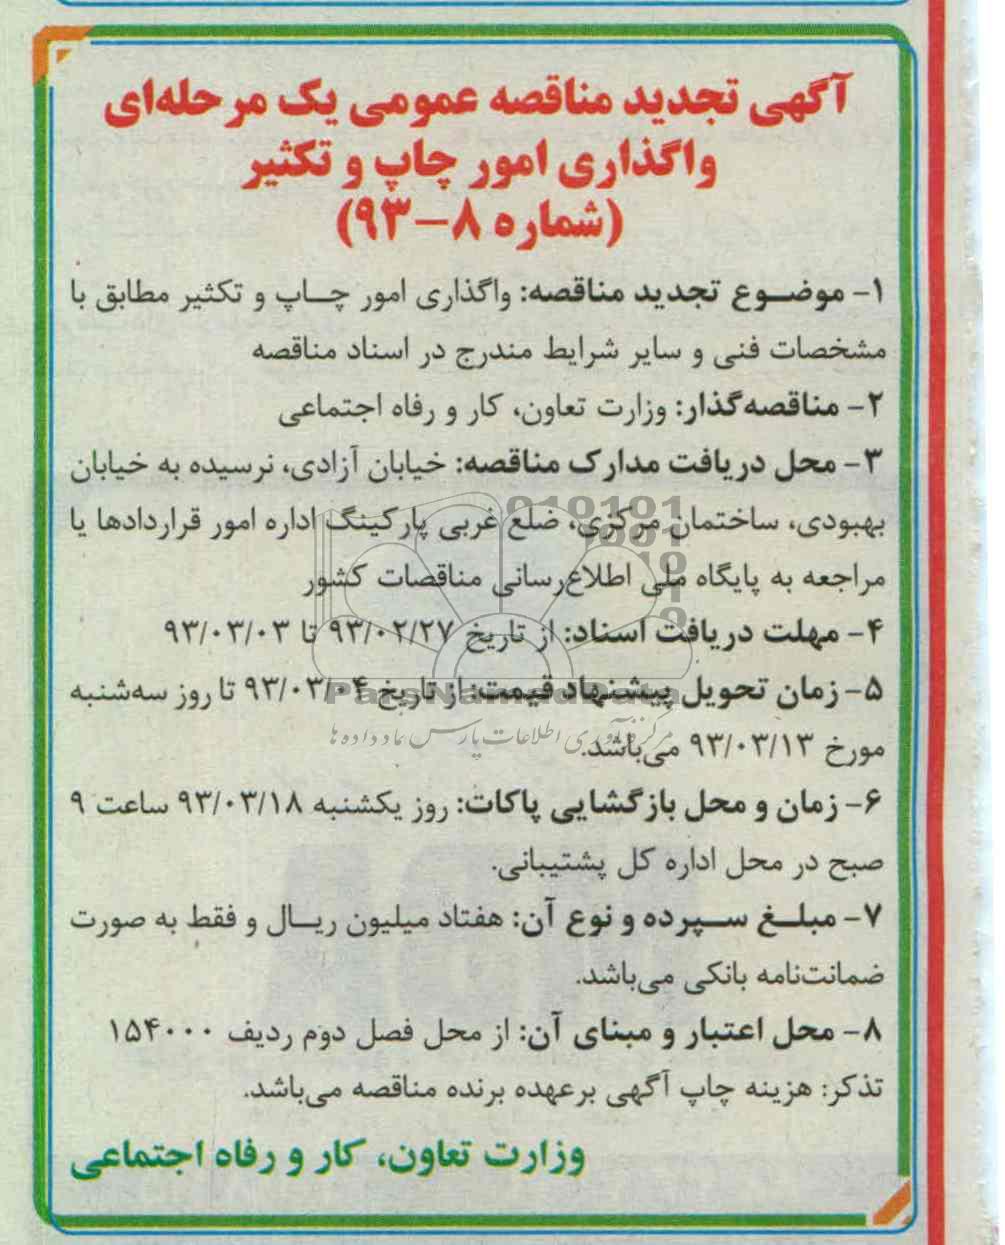 آگهی تجدید مناقصه عمومی یک مرحله‌ای
واگذاری امور چاپ و تکثیر
(شماره ۸-۹۳)
۱- موضوع تجدید مناقصه: واگذاری امور چاپ و تکثیر مطابق با
مشخصات فنی و سایر شرایط مندرج در اسناد مناقصه
۲- مناقصه‌گذار: وزارت تعاون، کار و رفاه اجتماعی
۳- محل دریافت مدارک مناقصه: خیابان آزادی، نرسیده به خیابان
بهبودی، ساختمان مرکزی، ضلع غربی پارکینگ اداره امور قراردادها یا
مراجعه به پایگاه ملی اطلاع‌رسانی مناقصات کشور
۴- مهلت دریافت اسناد: از تاریخ ۹۳/۰۲/۲۷ تا ۹۳/۰۳/۰۳
۵- زمان تحویل پیشنهاد قیمت: از تاریخ ۹۳/۰۳/۰۴ تا روز سه‌شنبه
مورخ ۹۳/۰۳/۱۳ می‌باشد.
۶- زمان و محل بازگشایی پاکات: روز یکشنبه ۹۳/۰۳/۱۸ ساعت ۹
صبح در محل اداره کل پشتیبانی.
۷- مبلغ سپرده و نوع آن: هفتاد میلیون ریال و فقط به صورت
ضمانت‌نامه بانکی می‌باشد.
۸- محل اعتبار و مبنای آن: از محل فصل دوم ردیف ۱۵۴۰۰۰
تذکر: هزینه چاپ آگهی برعهده برنده مناقصه می‌باشد.
وزارت تعاون، کار و رفاه اجتماعی
ParsNamadData